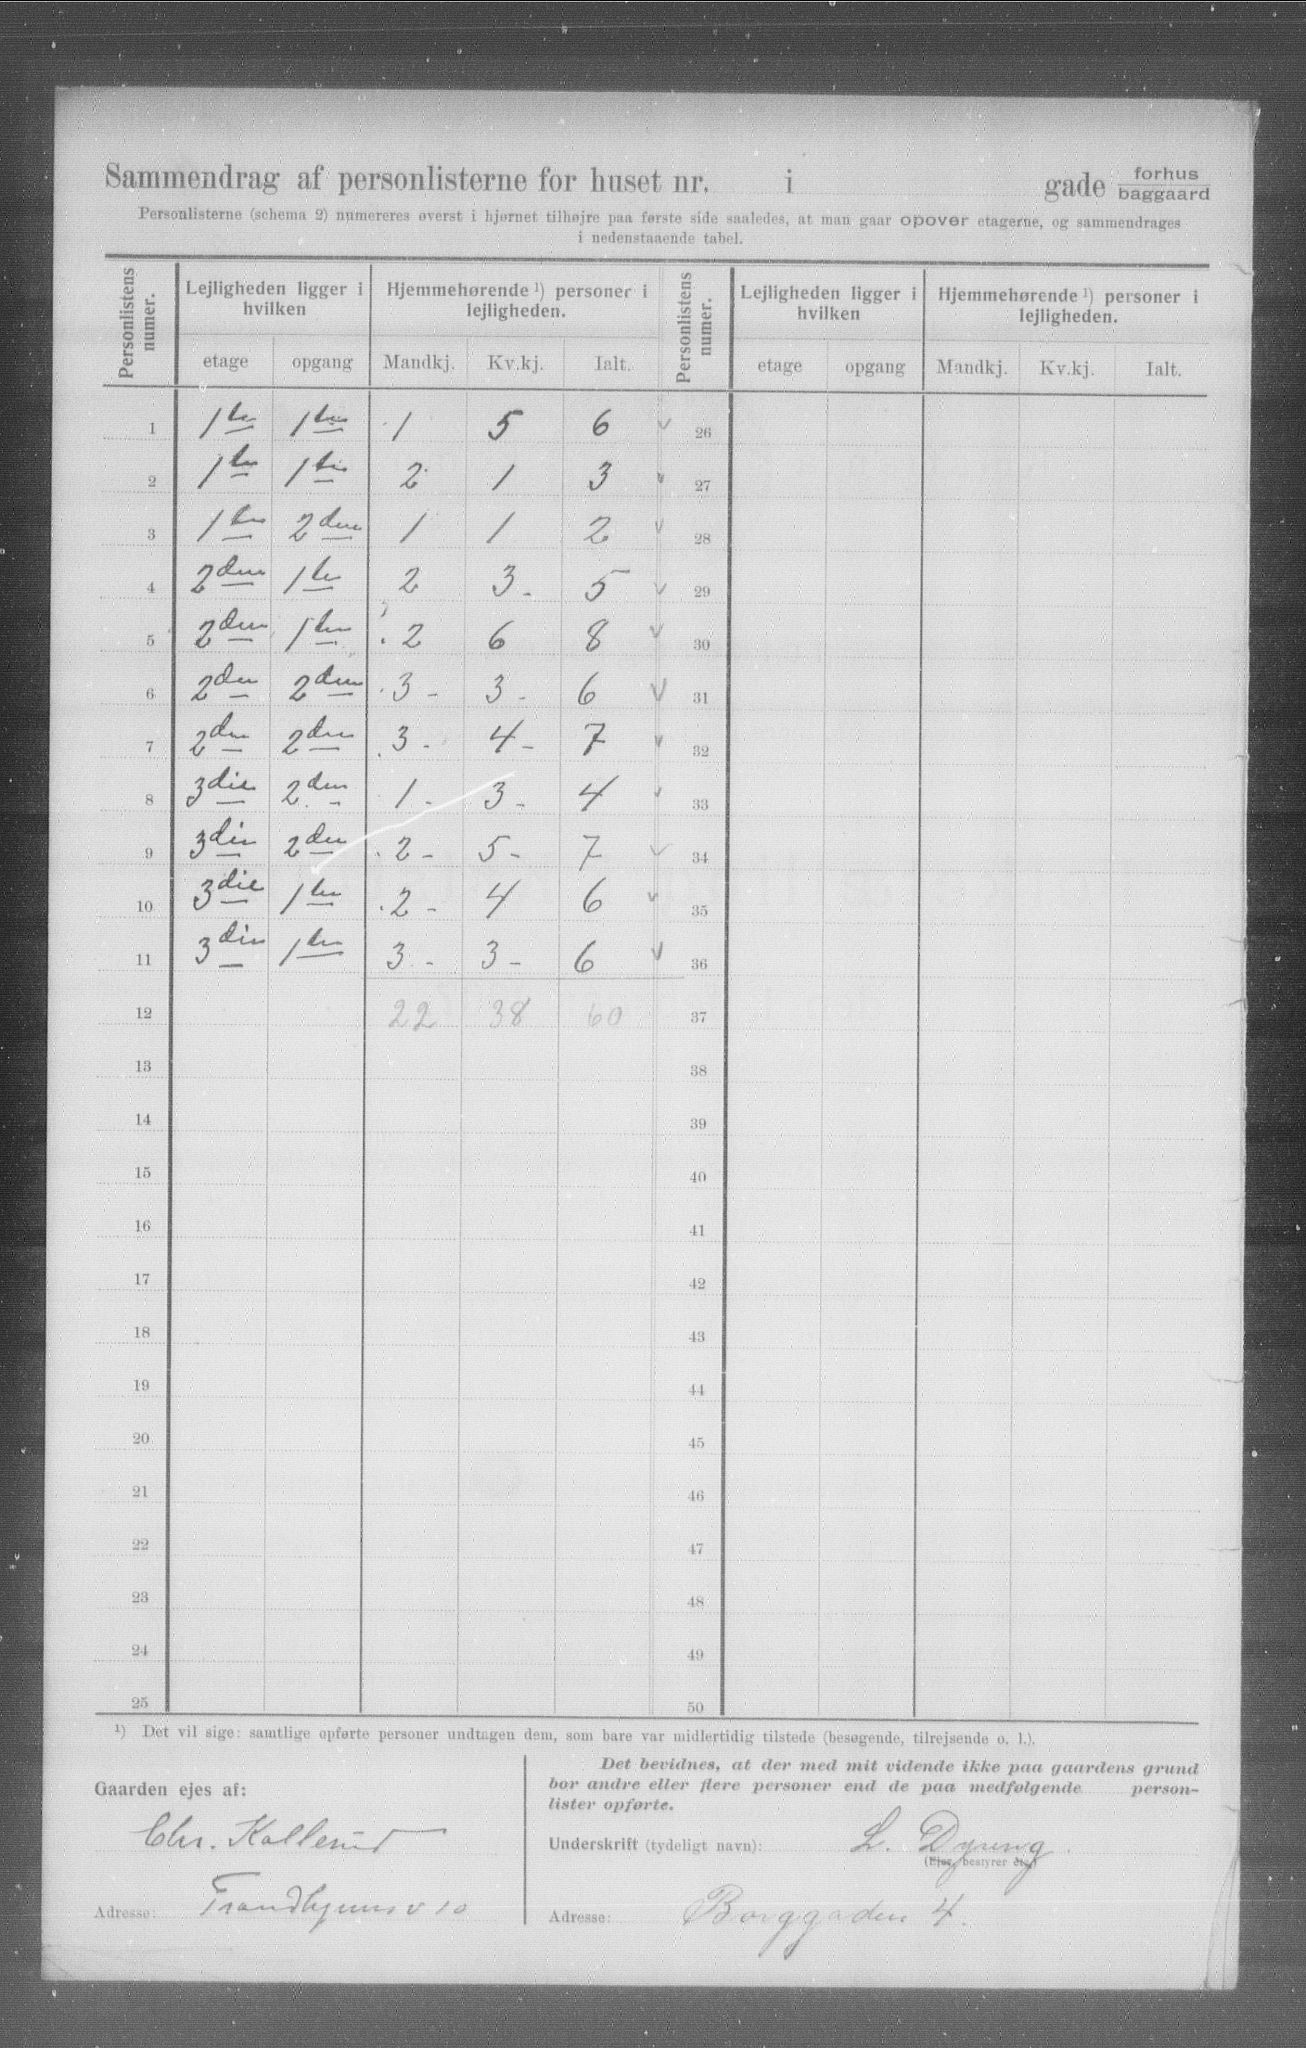 Sammendrag af personlisterne for huset nr. i gade forhus baggaard
Personlisterne (schema 2) numereres øverst i hjørnet tilhøjre paa første side saaledes, at man gaar opover etagerne, og sammendrages
i nedenstaaende tabel.
Personlistens numer. Lejligheden ligger i hvilken Hjemmehørende ¹) personer i lejligheden. Personlistens numer. Lejligheden ligger i hvilken Hjemmehørende ¹) personer i lejligheden.
etage opgang Mandkj. Kv.kj. Ialt. etage opgang Mandkj. Kv.kj. Ialt.
1 1ste 1ste 1 5 6 26
2 1ste 1ste 2 1 3 27
3 1ste 2den 1 1 2 28
4 2den 1ste 2 3 - 5 29
5 2den 1ste 2 6 8 30
6 2den 2den 3 - 3 - 6 31
7 2den 2den 3 - 4 - 7 32
8 3die 2den 1 - 3 - 4 33
9 3die 2den 2 - 5 - 7 34
10 3die 1ste 2 - 4 6 35
11 3die 1ste 3 - 3 - 6 36
12 22 38 60 37
13 38
14 39
15 40
16 41
17 42
18 43
19 44
20 45
21 46
22 47
23 48
24 49
25 50
¹) Det vil sige: samtlige opførte personer undtagen dem, som bare var midlertidig tilstede (besøgende, tilrejsende o. l.).
Gaarden ejes af:
Chr. Kollerud
Adresse: Trondhjemsv 10
Det bevidnes, at der med mit vidende ikke paa gaardens grund
bor andre eller flere personer end de paa medfølgende person-
lister opførte.
Underskrift (tydeligt navn): L. Dyring
(Ejer, bestyrer etc.)
Adresse: Borggaden 4.